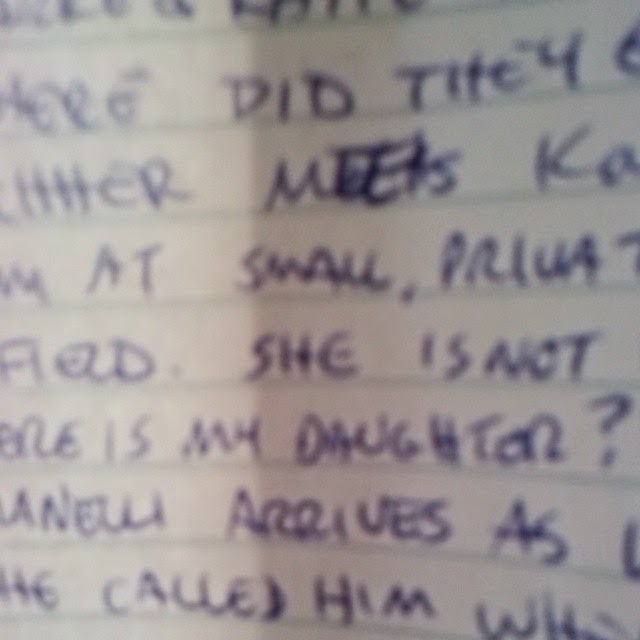 HERE DID THEY
MEETS Ka
AT SMALL, PRIVAT
FIELD. SHE IS NOT
ERE IS MY DAUGHTER?
ANELLI ARRIVES AS
HE CALLED HIM WHO